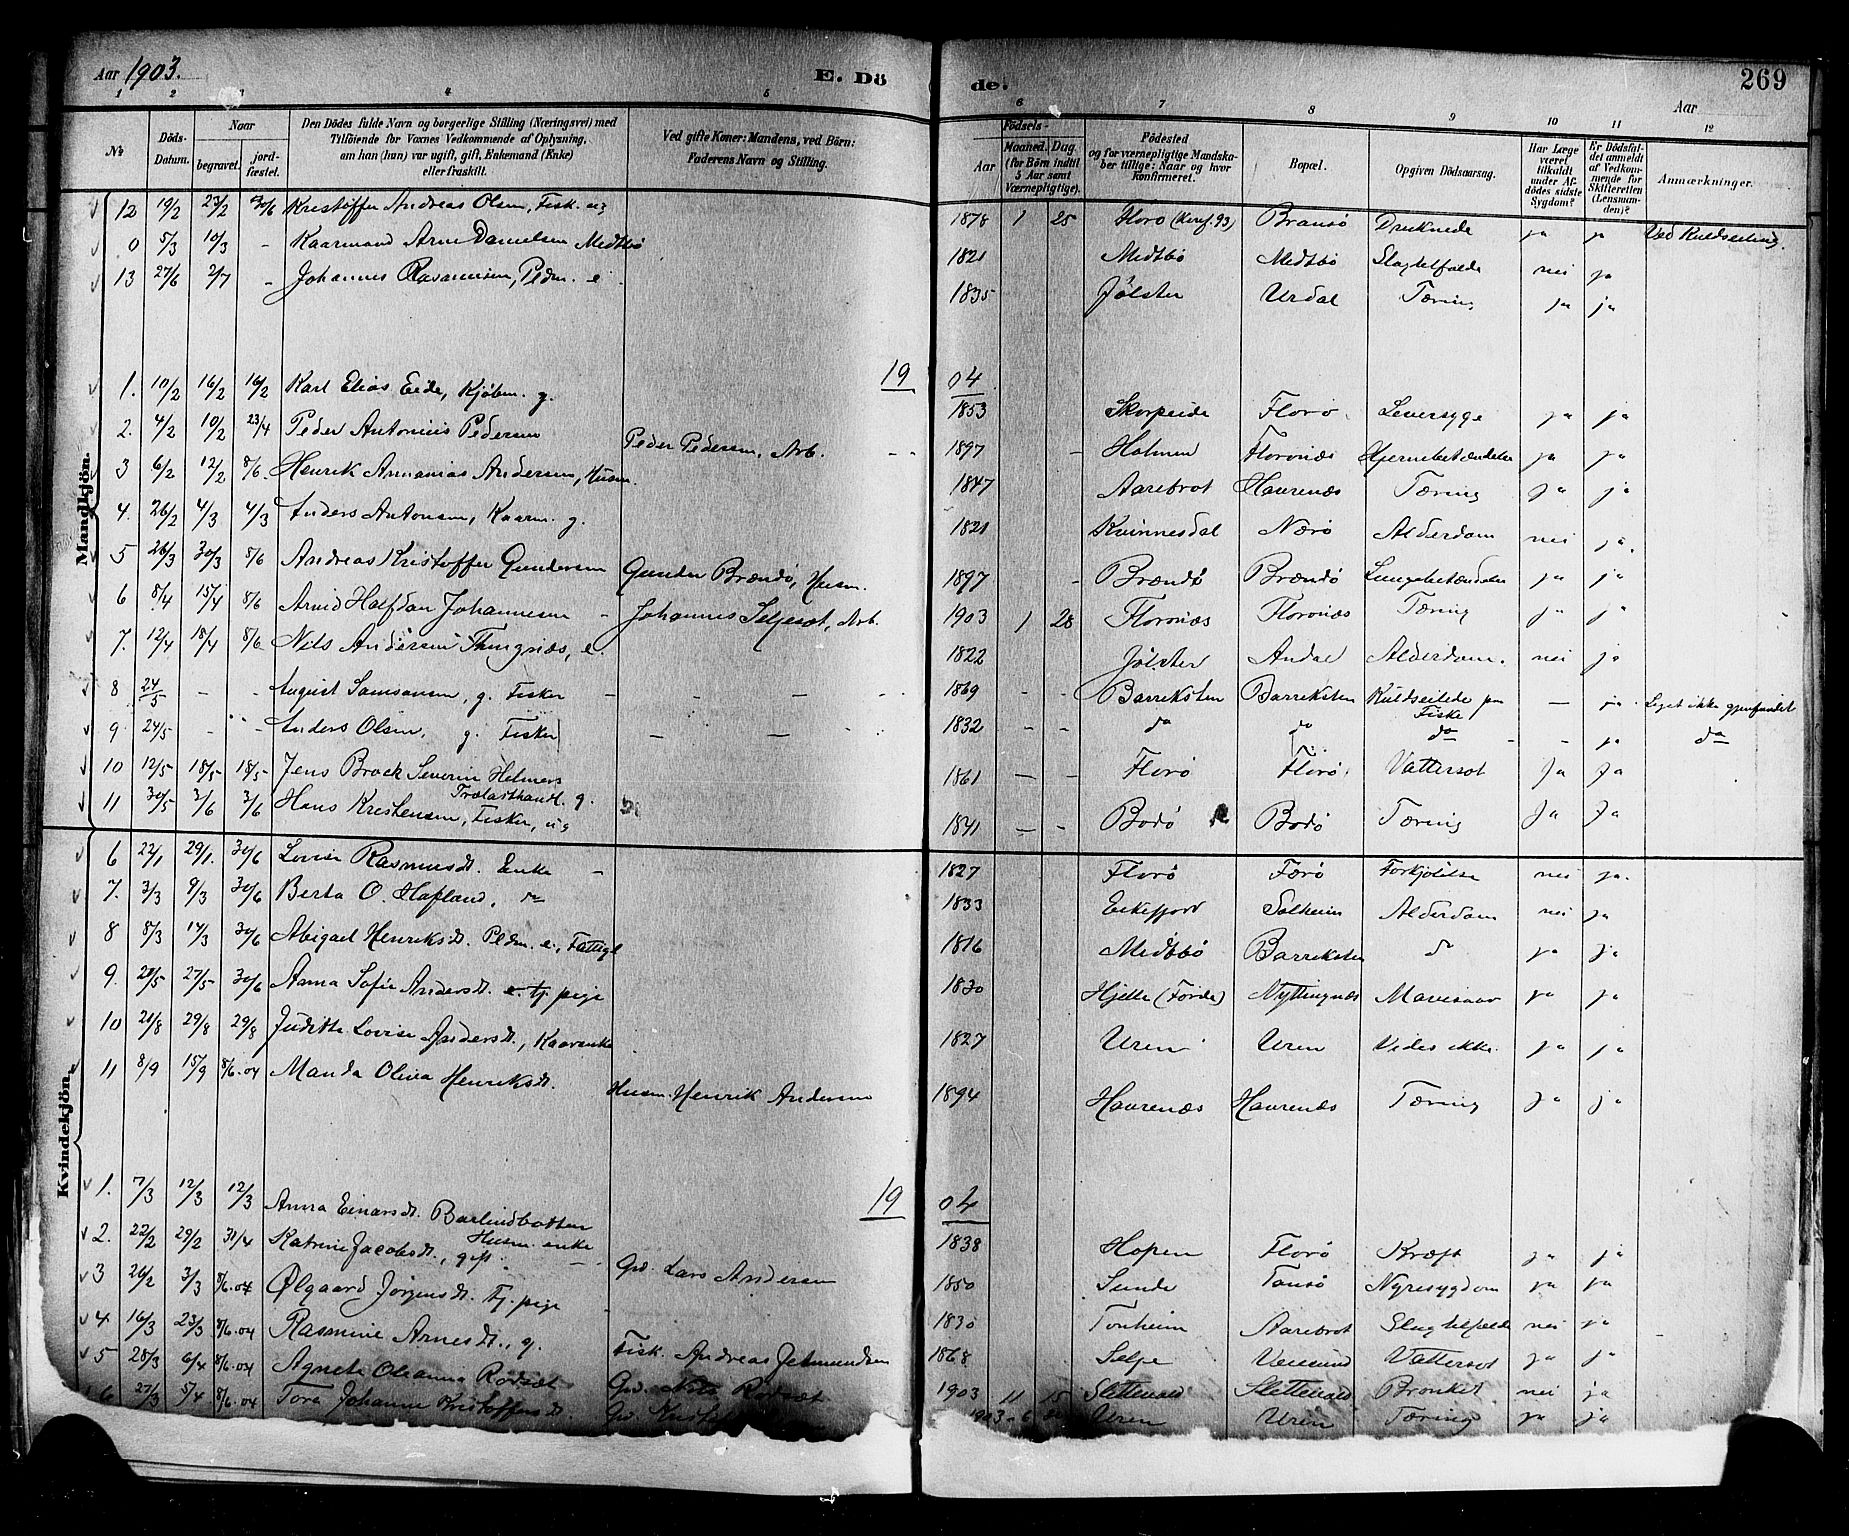 Aar 1903.
E. Dö
de.
269
Aar
1 2 3 4 5 6 7 8 9 10 11 12
No
Döds-Datum.
Naar
begravet.
jord-fæstet.
Den Dödes fulde Navn og borgerlige Stilling (Næringsvei) med
Tilföiende for Voxnes Vedkommende af Oplysning,
om han (hun) var ugift, gift, Enkemand (Enke)
eller fraskilt.
Ved gifte Koner: Mandens, ved Börn:
Faderens Navn og Stilling.
Födsels-
Aar
Maaned. Dag.
(for Börn indtil
5 Aar samt
Værnepligtige).
Födested
og for værnepligtige Mandska-
ber tillige: Naar og hvor
konfirmeret.
Bopæl.
Opgiven Dödsaarsag.
Har Læge
været
tilkaldt
under Af-
dödes sidste
Sygdom?
Er Dödsfal-
det anmeldt
af Vedkom-
mende for
Skifteretten
(Lensman-
den)?
Anmærkninger.
Mandkjön.
12 19/2 23/2 30/6 Kristoffer Andreas Olsen, Fisk. ug 1878 1 25 Florö (Konf. 93) Bransö Druknede ja ja Ved Kuldseiling.
0 5/3 10/3 - Kaarmand Arne Danielsen Medtbö 1821 Medtbö Medtbö Slagtilfælde nei ja
13 27/6 2/7 - Johannes Rasmussen, Pedm. e. 1835 Jölster Urdal Tæring ja ja
1904
1. 10/2 16/2 16/2 Karl Elias Eide, Kjöbm. g. 1853 Skorpeide Florö Leversyge ja ja
2. 4/2 10/2 23/4 Peder Antonius Pedersen Peder Pedersen, Arb. 1897 - Holmen Floronæs Hjernebetændelse ja ja
3 6/2 12/2 8/6 Henrik Annanias Andersen, Husm. 1847 Aarebrot Haurenæs Tæring ja ja
4. 26/2 4/3 4/3 Anders Antonsen, Kaarm. g. 1821 Kvinnesdal Nærö Alderdom nei ja.
5 26/3 30/3 8/6 Andreas Kristoffer Gundersen Gunder Brændö, Husm. 1897 - Brændö Brændö Lungebetændelse ja ja
6 8/4 15/4 8/6 Arvid Halfdan Johannesen - Johannes Seljeset, Arb. 1903 1 28 Floronæs Floronæs Tæring ja ja
7. 12/4 18/4 8/6 Nils Andersen Thingnæs, e. 1822 Jölster Andal Alderdom. nei ja
8 24/5 - - August Samsonsen, g. Fisker - - - 1869 - - Barreksten Barreksten Kuldseilede paa Fiske - ja Liget ikke gjenfundet
9 24/5 - - Anders Olsen, g. Fisker - - - 1832 - - do do do - - ja do
10 12/5 18/5 18/5 Jens Brock Severin Helmers Trælasthandl. g. 1861 - - Florö Florö Vattersot Ja Ja
11 30/5 3/6 3/6 Hans Kristensen, Fisker, ug 1841 - - Bodö Bodö Tæring Ja Ja
Kvindekjön.
6 22/1 29/1. 30/6 Lovise Rasmusdt. Enke - 1827 Florö Færö Forkjölelse nei ja.
7. 3/3 9/3 30/6 Berta O. Hafland, do 1833 Eikefjord Solheim Alderdom nei ja
8 8/3 14/3 30/6 Abigael Henriksdt. Pedm. e., Fattigl 1816 Medtbö Barreksten do ja ja
9. 20/5 27/5 30/6 Anna Sofie Andersdt. e. tj. pige 1830 Hjelle (Förde) Nyttingnæs Mavesaar ja ja
10 21/8 29/8 29/8 Judithe Lovise Andersdt., Kaarenke 1827 Uren Uren Vides ikke. ja ja
11 8/9 15/9 8/6.04 Manda Oliva Henriksdt. Husm. Henrik Andersen 1894 Haurenæs Haurenæs Tæring ja ja
1904
1. 7/3 12/3 12/3 Anna Einarsdt. Barlindbotten Husm. enke 1838 Hopen Florö Kræft ja ja
2. 22/2 29/2 30/4 Katrine Jacobsdt., gift. - - Gbr. Lars Andersen 1850 Sunde Tansö Nyresygdom ja ja
3 26/2 3/3 8/6.04 Ølgaard Jörgensdt. Tj. pige 1830 Tonheim Aarebrot Slagtilfælde nei ja
4 16/3 23/3 8/6.04 Rasmine Arnesdt., g. Fisk. Andreas Jetmundsen 1868 Selje Veresund Vattersot ja ja
5 28/3 6/4 8/6.04 Agnete Oleanna Rödsæt Gbr. Nils Rödsæt 1903 11 15 Slettevold Slettevold Bronkit nei ja
6 27/3 5/4 8/6.04 Tora Johanne Kristoffersdt. Gbr. 1903 6 Uren Uren Tæring ja ja